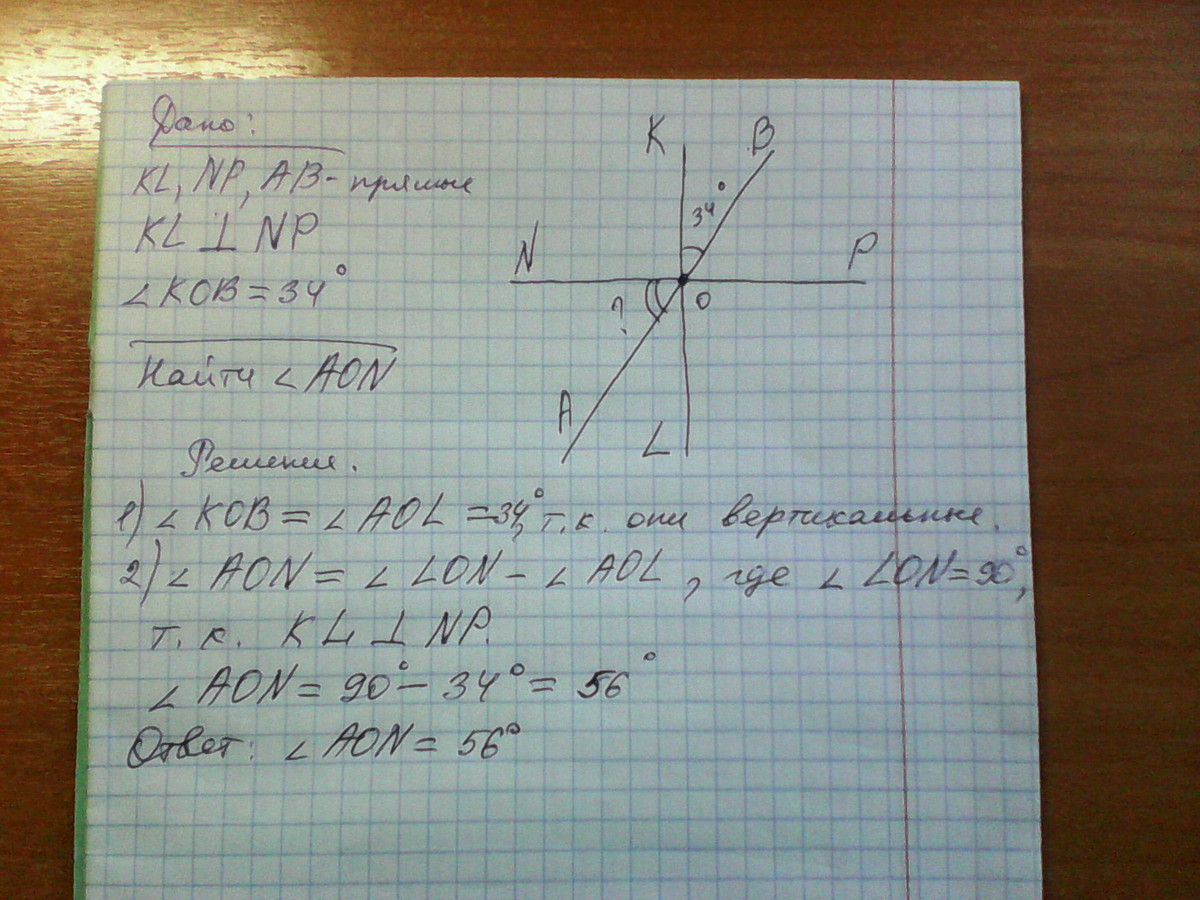 Дано:
KL, NP, AB - прямые
KL ⊥ NP
∠KOB = 34°
Найти ∠AON
K
B
34°
N
P
?
O
A
L
Решение.
1) ∠KOB = ∠AOL = 34°, т.к. они вертикальные.
2) ∠AON = ∠LON - ∠AOL, где ∠LON = 90°,
т.к. KL ⊥ NP.
∠AON = 90° - 34° = 56°
Ответ: ∠AON = 56°